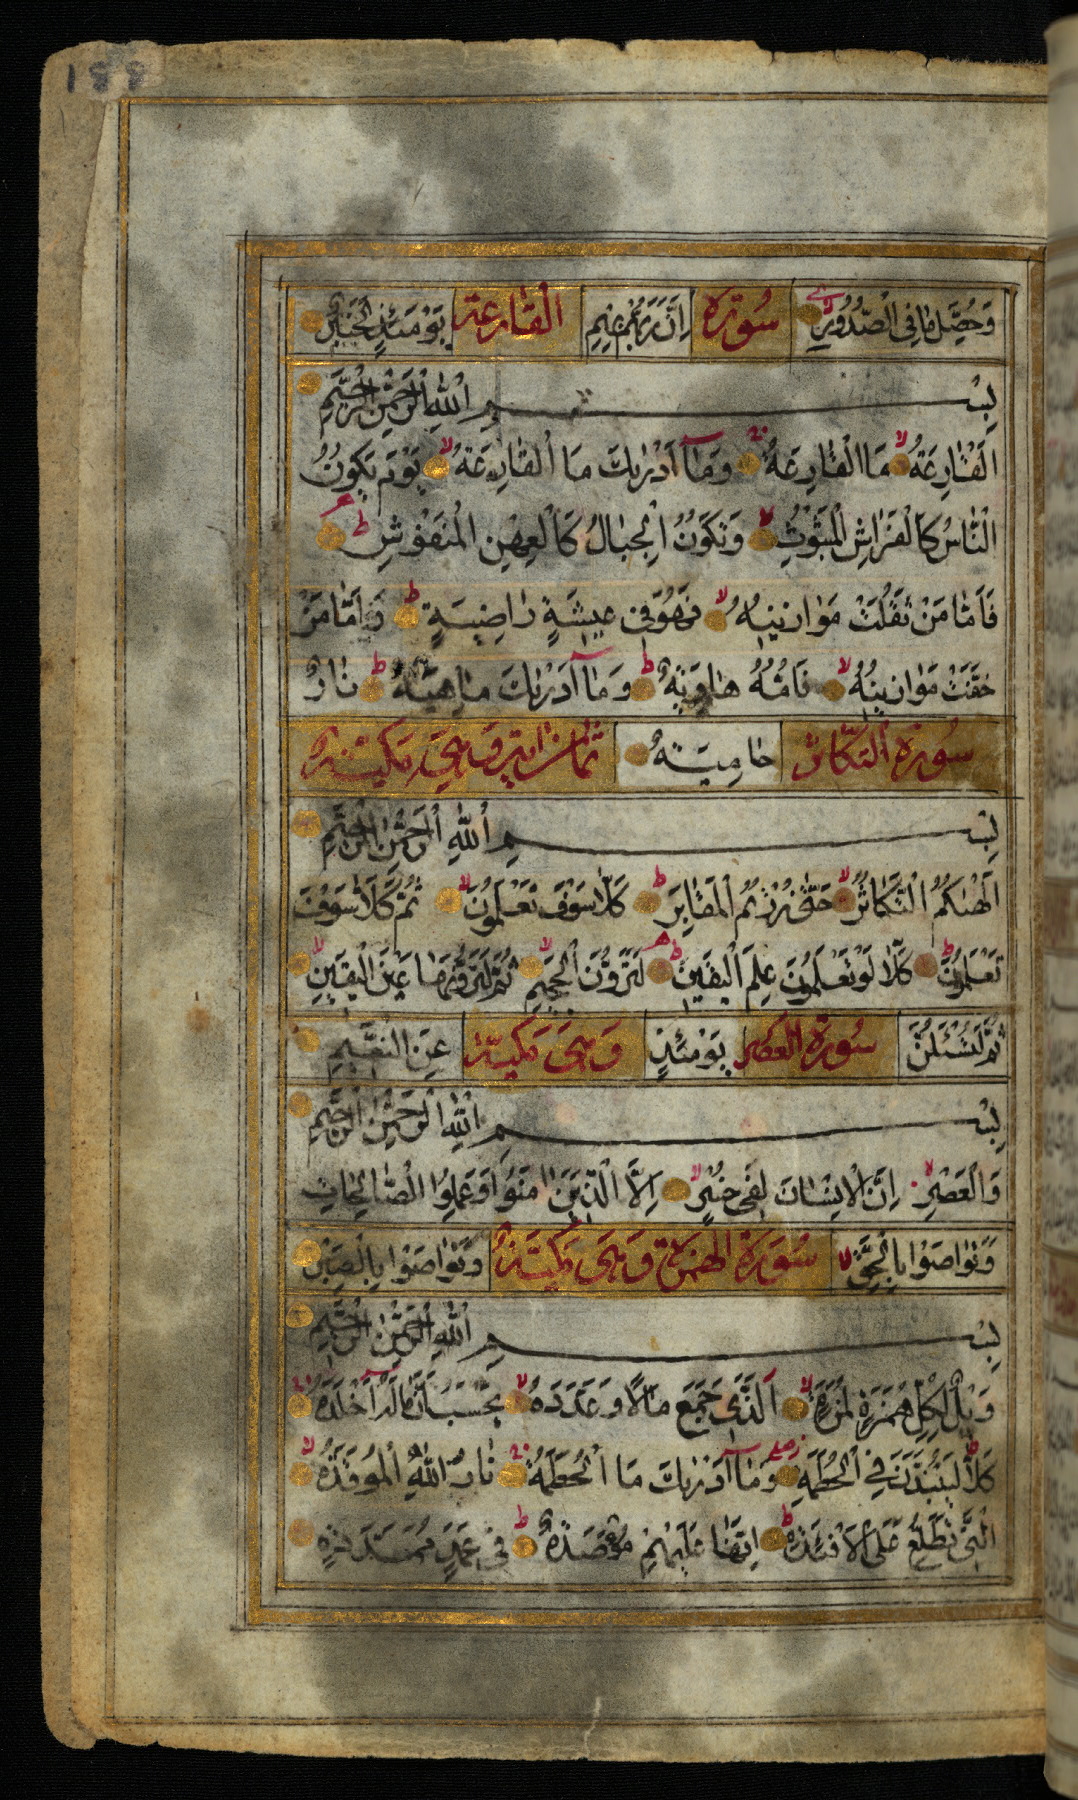 188
وَحُصِّلَ مَا فِى الصُّدُورِ سُورَة اِنَّ رَبَّهُمْ بِهِمْ القارعة يَوْمَئِذٍ لَخَبِيرٌ
بِسْمِ اللّٰهِ الرَّحْمٰنِ الرَّحِيمِ
اَلْقَارِعَةُ مَا الْقَارِعَةُ وَمَا اَدْرٰىكَ مَا الْقَارِعَةُ يَوْمَ يَكُونُ
النَّاسُ كَالْفَرَاشِ الْمَبْثُوثِ وَتَكُونُ الْجِبَالُ كَالْعِهْنِ الْمَنْفُوشِ
فَاَمَّا مَنْ ثَقُلَتْ مَوَازِينُهُ فَهُوَ فِى عِيشَةٍ رَاضِيَةٍ وَاَمَّا مَنْ
خَفَّتْ مَوَازِينُهُ فَاُمُّهُ هَاوِيَةٌ وَمَا اَدْرٰىكَ مَاهِيَهْ نَارٌ
سورة التكاثر حَامِيَةٌ ثمان اية وهى مكية
بِسْمِ اللّٰهِ الرَّحْمٰنِ الرَّحِيمِ
اَلْهٰىكُمُ التَّكَاثُرُ حَتّٰى زُرْتُمُ الْمَقَابِرَ كَلَّا سَوْفَ تَعْلَمُونَ ثُمَّ كَلَّا سَوْفَ
تَعْلَمُونَ كَلَّا لَوْ تَعْلَمُونَ عِلْمَ الْيَقِينِ لَتَرَوُنَّ الْجَحِيمَ ثُمَّ لَتَرَوُنَّهَا عَيْنَ الْيَقِينِ
ثُمَّ لَتُسْئَلُنَّ سورة العصر يَوْمَئِذٍ وهى مكية عَنِ النَّعِيمِ
بِسْمِ اللّٰهِ الرَّحْمٰنِ الرَّحِيمِ
وَالْعَصْرِ اِنَّ الْاِنْسَانَ لَفِى خُسْرٍ اِلَّا الَّذِينَ اٰمَنُوا وَعَمِلُوا الصَّالِحَاتِ
وَتَوَاصَوْا بِالْحَقِّ سورة الهمزة وهى مكية وَتَوَاصَوْا بِالصَّبْرِ
بِسْمِ اللّٰهِ الرَّحْمٰنِ الرَّحِيمِ
وَيْلٌ لِكُلِّ هُمَزَةٍ لُمَزَةٍ اَلَّذِى جَمَعَ مَالًا وَعَدَّدَهُ يَحْسَبُ اَنَّ مَالَهُ اَخْلَدَهُ
كَلَّا لَيُنْبَذَنَّ فِى الْحُطَمَةِ وَمَا اَدْرٰىكَ مَا الْحُطَمَةُ نَارُ اللّٰهِ الْمُوقَدَةُ
الَّتِى تَطَّلِعُ عَلَى الْاَفْئِدَةِ اِنَّهَا عَلَيْهِمْ مُؤْصَدَةٌ فِى عَمَدٍ مُمَدَّدَةٍ